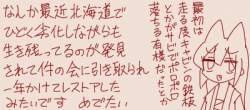 なんか最近北海道で
ひどく劣化しながらも
生き残ってるのが発見
されて件の会に引き取られ
一年かけてレストアした
みたいです めでたい
最初は
走る度キャビンの鉄板
とかがサビでボロボロ
落ちる有様だったとか